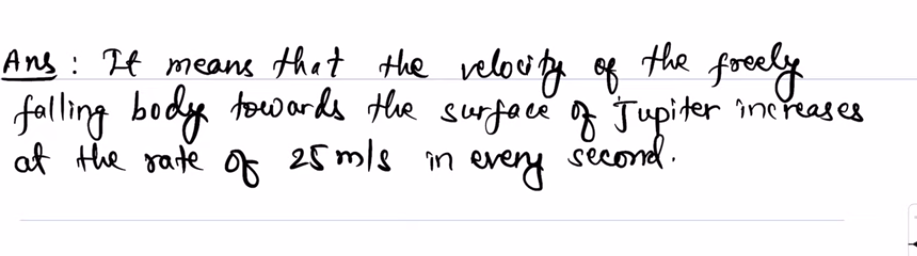 Ans : It means that the velocity of the freely
falling body towards the surface of Jupiter increases
at the rate of 25 m/s in every second.